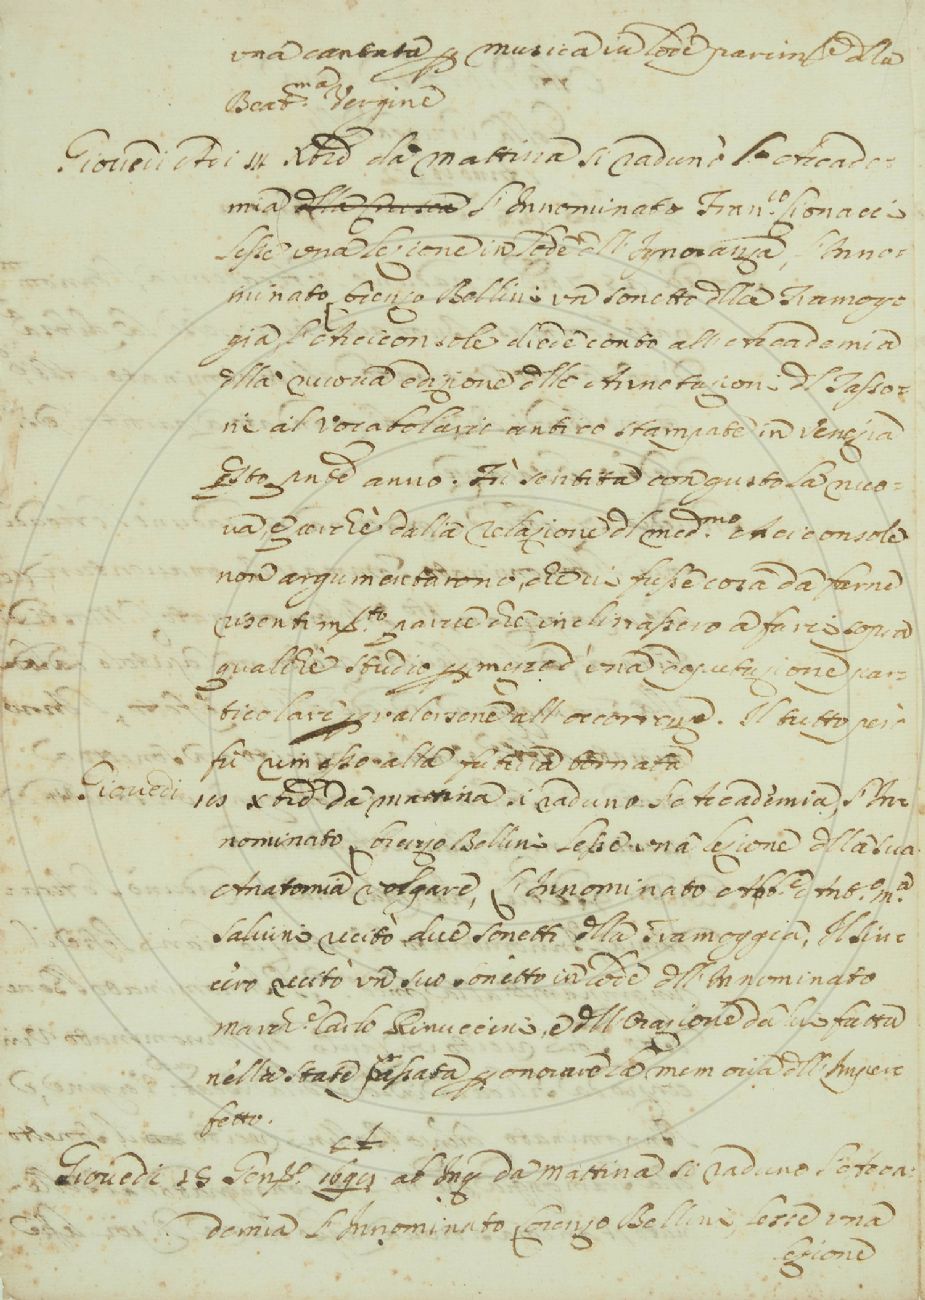 una cantata p musica in lode parimte dlla
Beatma Vergine
Giovedi Adi 14 Xbre da mattina si radunò l'Accade-
mia dlla Crusca L'Innominato Franco Sionacci
lesse una lezione in lode dll'Ignoranza, l'Inno-
minato Lorenzo Bellini un sonetto dlla Tramog-
gia l'Arciconsolo diede conto all'Accademia
dlla nuova edizione dlle Annotazioni dl Tasso-
ni al Vocabolario antico stampate in Venezia
qsto pnte anno. Fù sentita con gusto la nuo-
va, e perche dalla relazione dl medmo Arciconsolo
non argumentarono, che vi fusse cosa da farne
risentimto parve che inclinassero a farci sopra
qualche studio p mezzo d'una deputazione par-
ticolare p valersene all'occorrenze. Il tutto però
fù rimesso alla futura tornata
Giovedi 18 Xbre da mattina si raduno l'Accademia, l'In-
nominato Lorenzo Bellini lesse una lezione dlla sua
Anatomia volgare, L'Innominato Abbe Anto Ma
Salvini recitò due sonetti dlla Tramoggia, Il
recitò un suo sonetto in lode dll'Innominato
Marche Carlo Rinuccini, e dll'Orazione da lui fatta
nella state passata p onorare la memoria dll'Imper-
fetto.
Giovedi 15 Genno 1698 ab Inc da mattina si raduno l'Acca-
demia L'Innominato Lorenzo Bellini lesse una
lezione